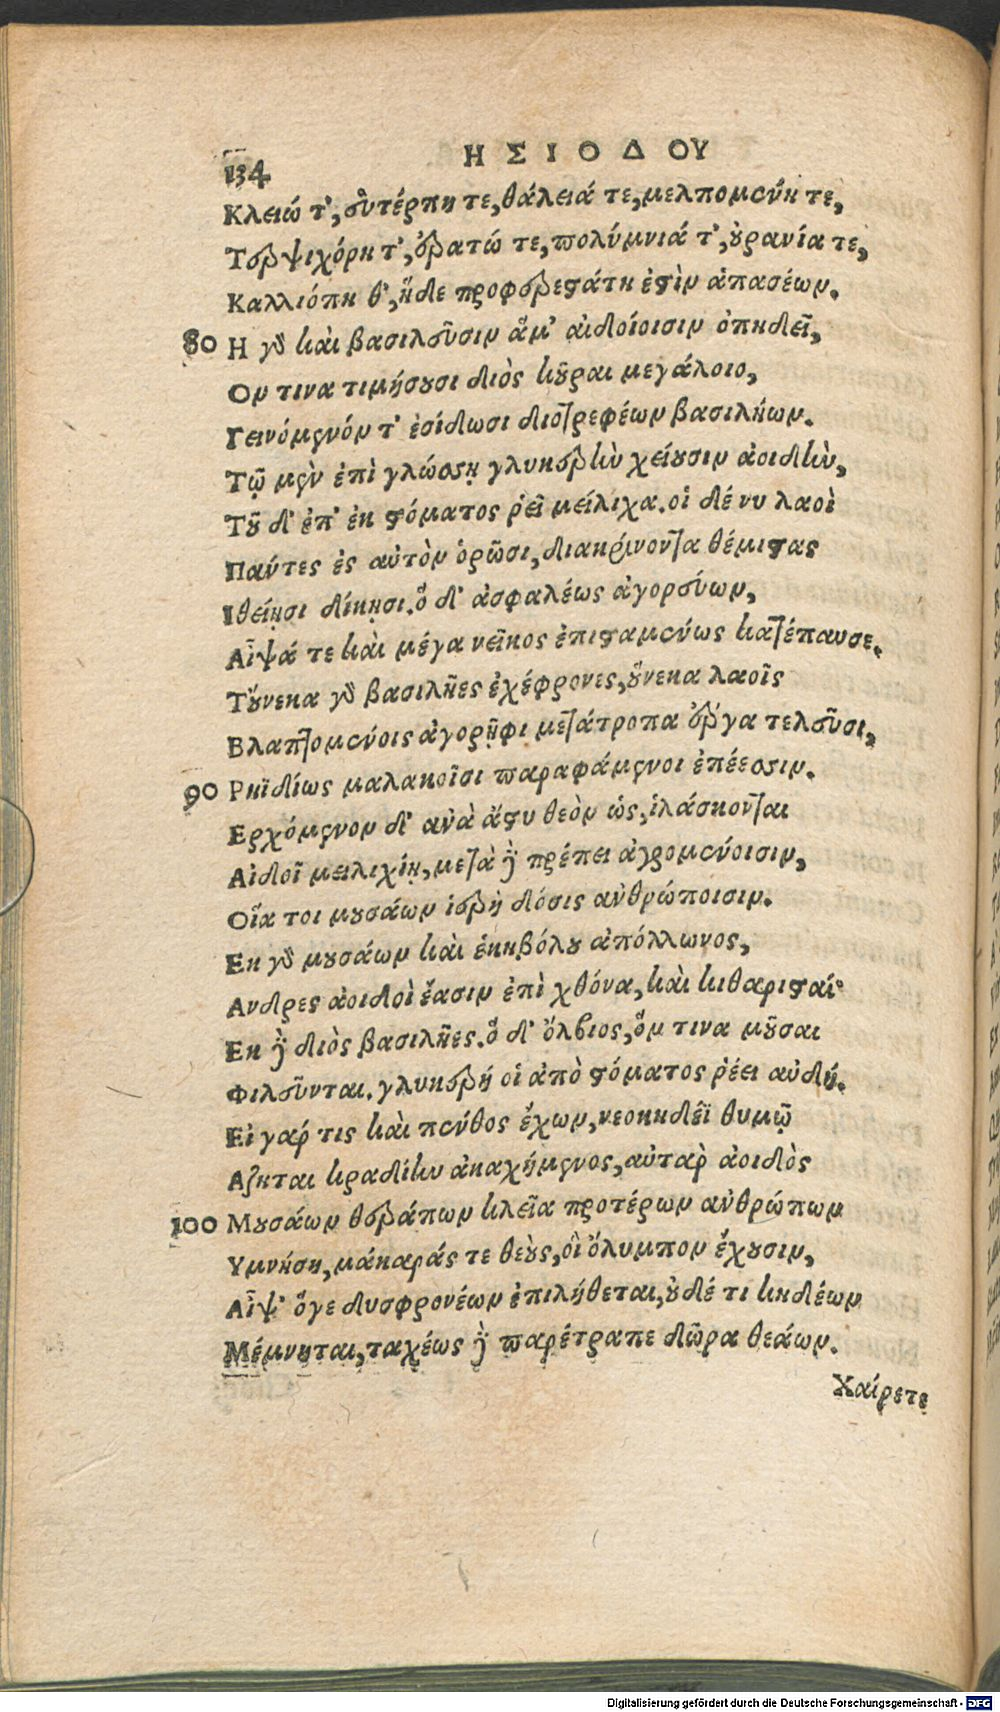 134
ΗΣΙΟΔΟΥ
Κλειώ τ', εὐτέρπη τε, θάλειά τε, μελπομένη τε,
Τερψιχόρη τ', ἐρατώ τε, πολύμνιά τ', οὐρανία τε,
Καλλιόπη θ', ἥδε προφερεστάτη ἐστὶν ἁπασέων.
80 Η γὸ καὶ βασιλεῦσιν ἅμ' αἰδοίοισιν ὀπηδεῖ,
Ον τινα τιμήσουσι διὸς κοῦραι μεγάλοιο,
Γεινόμενόν τ' ἐσίδωσι διοτρεφέων βασιλήων.
Τῷ μὲν ἐπὶ γλώσσῃ γλυκερὴν χείουσιν ἀοιδὴν,
Τοῦ δ' ἐπ' ἐκ στόματος ῥεῖ μείλιχα. οἱ δέ νυ λαοὶ
Πάντες ἐς αὐτὸν ὁρῶσι, διακρίνοντα θέμιστας
Ιθείῃσι δίκῃσι. ὃ δ' ἀσφαλέως ἀγορεύων,
Αἶψά τε καὶ μέγα νεῖκος ἐπισταμένως κατέπαυσε.
Τούνεκα γὸ βασιλῆες ἐχέφρονες, οὕνεκα λαοῖς
Βλαπτομένοις ἀγορῆφι μετάτροπα ἔργα τελεῦσι,
90 Ρηϊδίως μαλακοῖσι παραφάμενοι ἐπέεσσιν.
Ερχόμενον δ' ἀνὰ ἄστυ θεὸν ὡς, ἱλάσκονται
Αἰδοῖ μειλιχίῃ, μετὰ δὲ πρέπει ἀγρομένοισιν,
Οἷα τοι μουσάων ἱερὴ δόσις ἀνθρώποισιν.
Εκ γὸ μουσάων καὶ ἑκηβόλου ἀπόλλωνος,
Ανδρες ἀοιδοὶ ἔασιν ἐπὶ χθόνα, καὶ κιθαρισταί·
Εκ δὲ διὸς βασιλῆες. ὃ δ' ὄλβιος, ὅν τινα μοῦσαι
Φιλεῦνται. γλυκερή οἱ ἀπὸ στόματος ῥέει αὐδή.
Εἰ γάρ τις καὶ πένθος ἔχων, νεοκηδέϊ θυμῷ
Αζηται κραδίην ἀκαχήμενος, αὐτὰρ ἀοιδὸς
100 Μουσάων θεράπων κλεῖα προτέρων ἀνθρώπων
Υμνήσῃ, μάκαράς τε θεοὺς, οἳ ὄλυμπον ἔχουσιν,
Αἶψ' ὅγε δυσφρονέων ἐπιλήθεται, οὐδέ τι κηδέων
Μέμνηται, ταχέως δὲ παρέτραπε δῶρα θεάων.
Χαίρετε
Digitalisierung gefördert durch die Deutsche Forschungsgemeinschaft - DFG